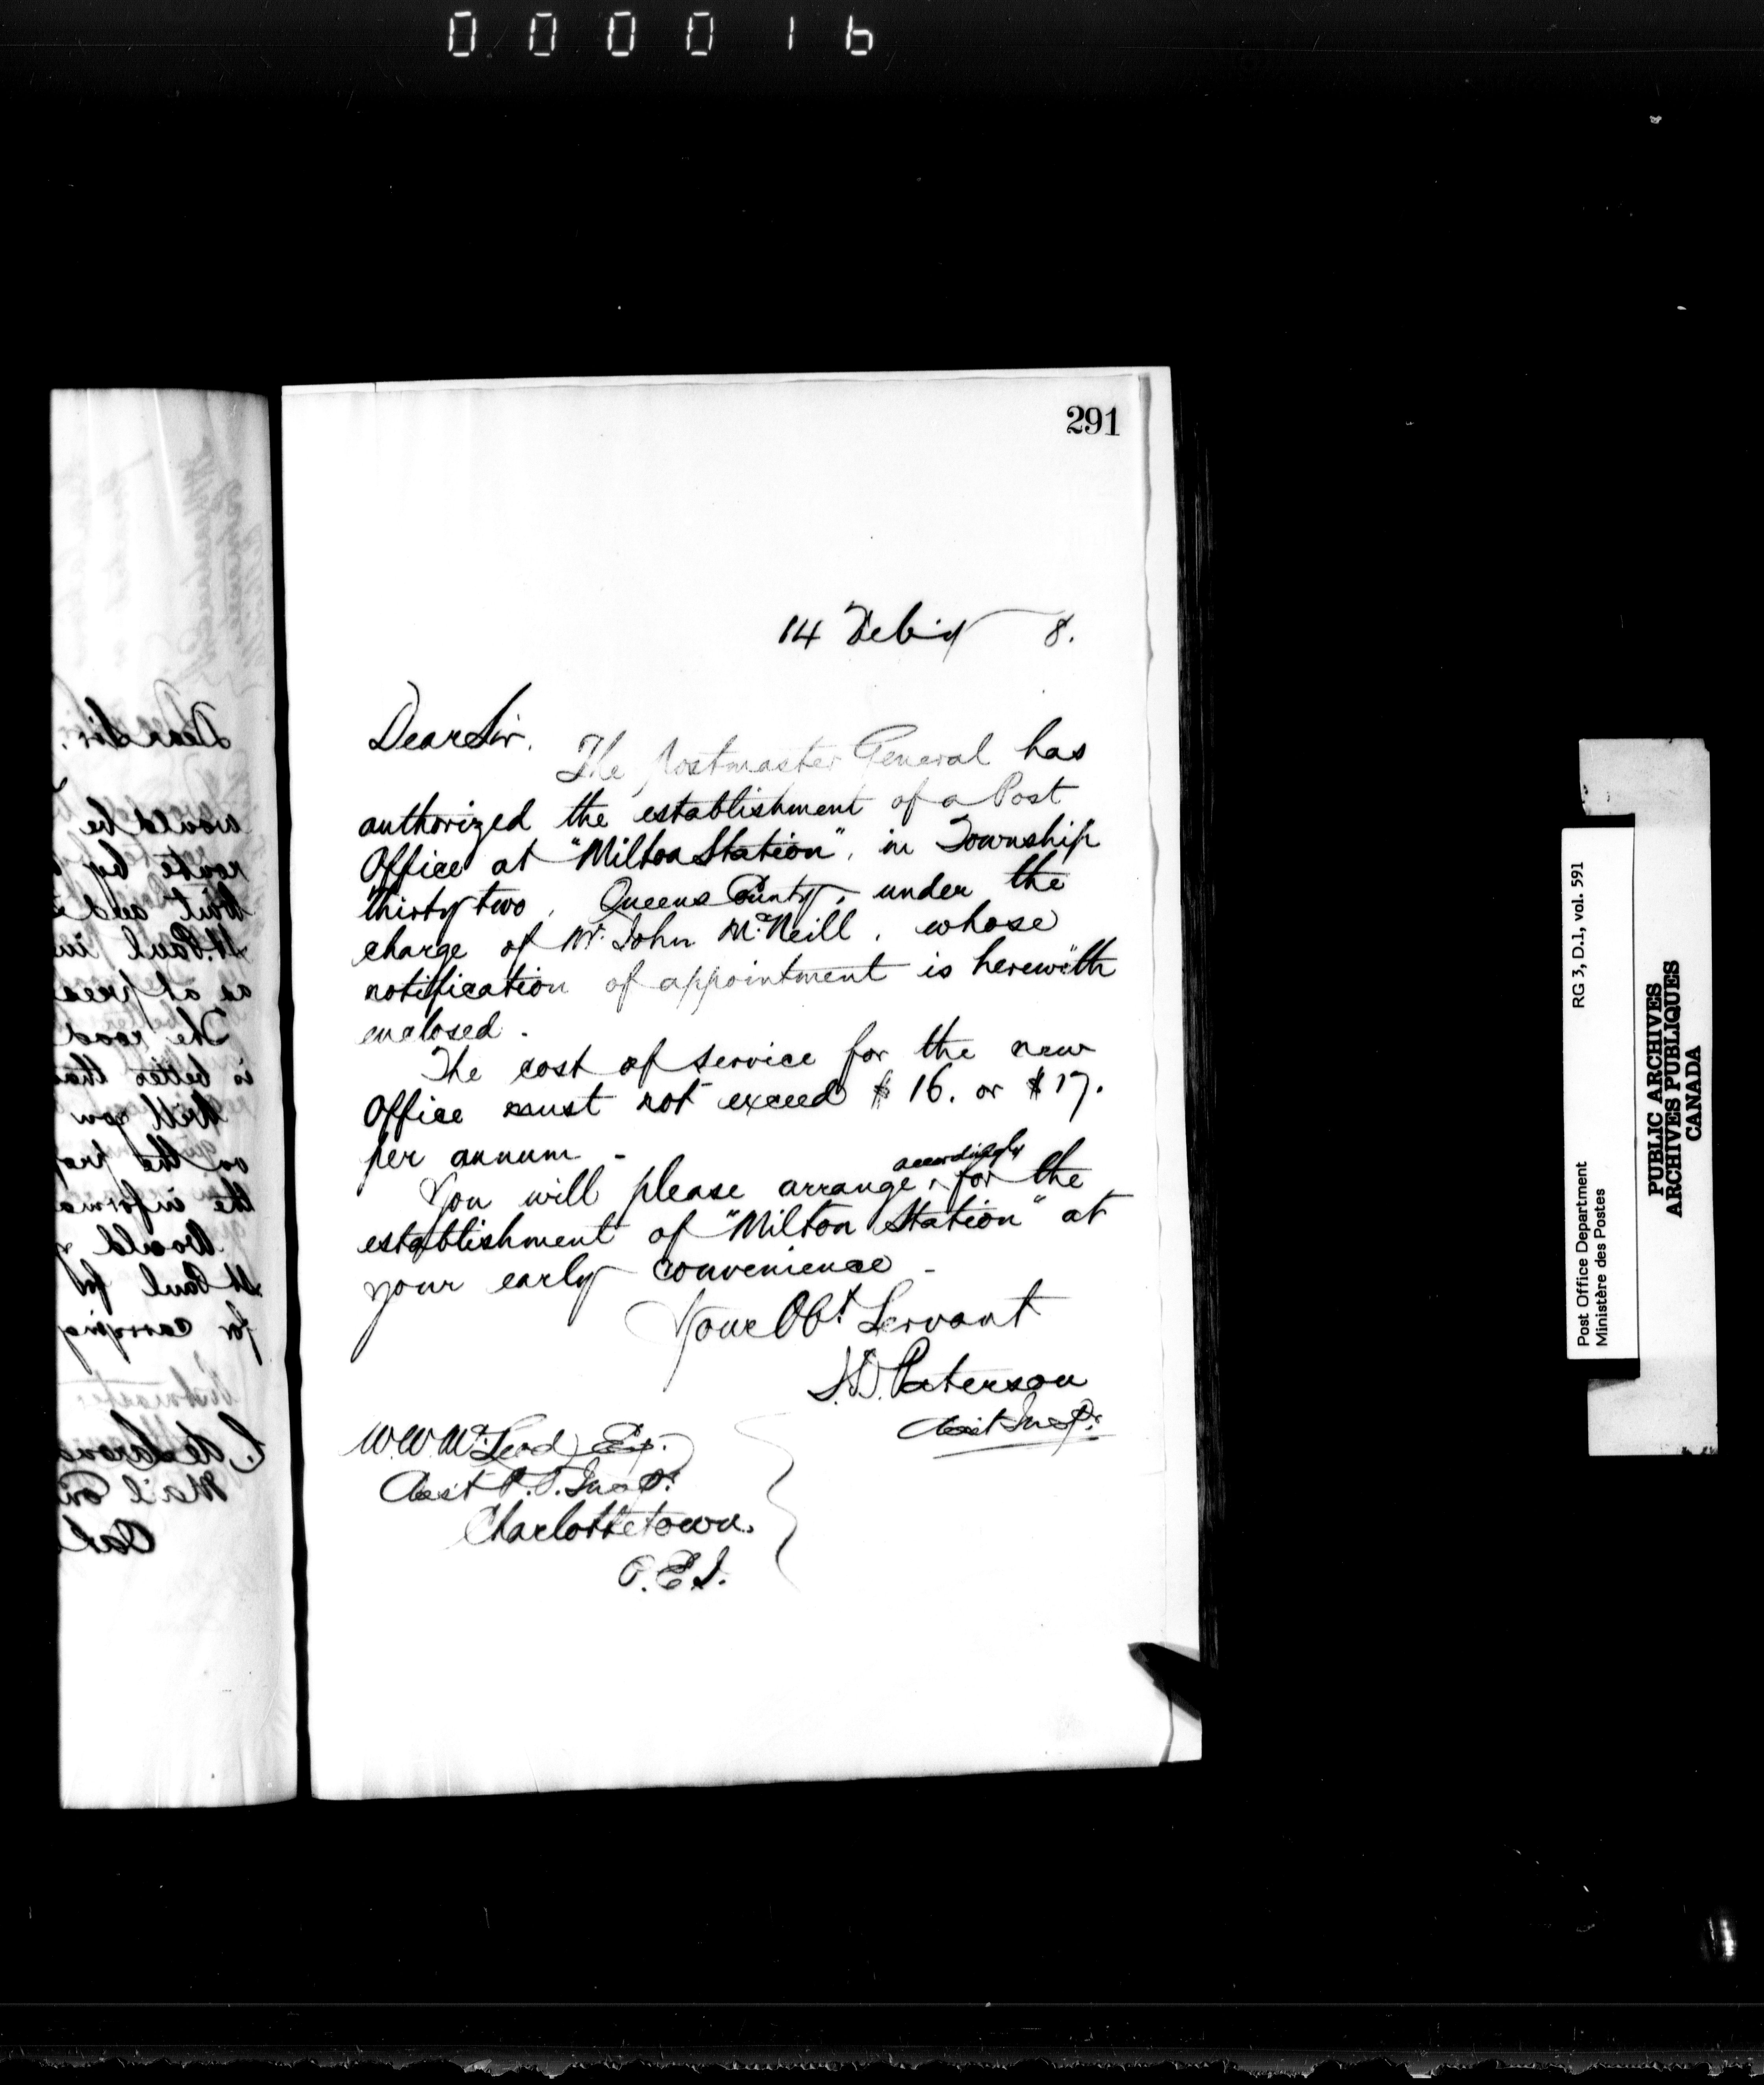 000016
291
14 Feby 8.
Dear Sir.
The Postmaster General has
authorized the establishment of a Post
Office at "Milton Station", in Township
thirty two, Queens County, under the
charge of Mr. John McNeill, whose
notification of appointment is herewith
enclosed.
The cost of service for the new
Office must not exceed $16. or $17.
per annum -
You will please arrange, accordingly for the
establishment of "Milton Station" at
your early convenience -
Your Obt Servant
J.D. Paterson
Asst Inspr.
W.W. McLeod Esq.
Asst P.O. Inspr.
Charlottetown.
P.E.I.
Dear Sir.
would be
route by
Wait and
St. Paul in
as at pres
The road
is better than
Will you
on the pro
the informa
Would y
St Paul for
for carrying
Mail Con
RG 3, D.1, vol. 591
Post Office Department
Ministère des Postes
PUBLIC ARCHIVES
ARCHIVES PUBLIQUES
CANADA